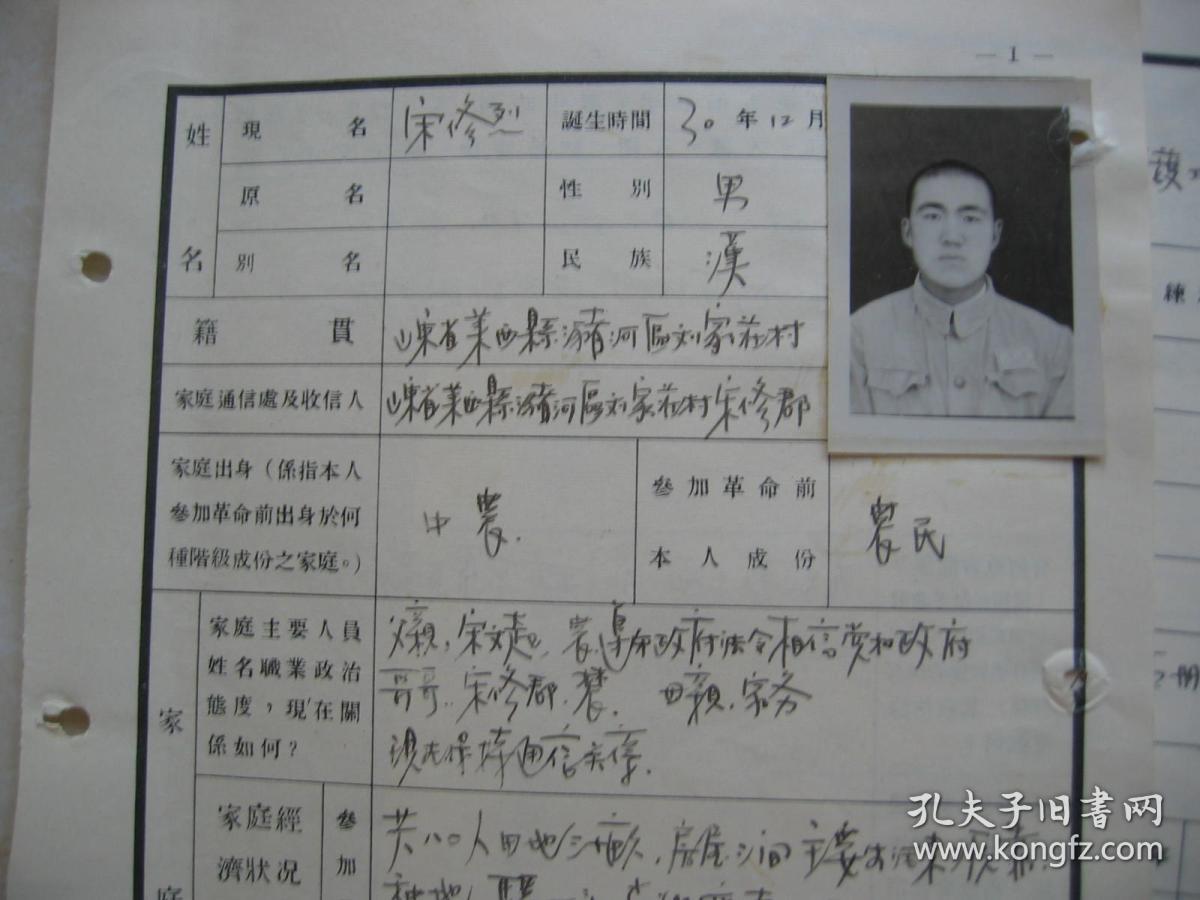 — 1 —
姓名
現名
宋修烈
誕生時間
30年12月
原名
性別
男
別名
民族
漢
籍貫
山東省萊西縣瀦河區刘家莊村
家庭通信處及收信人
山東省萊西縣瀦河區刘家莊村宋修郡
家庭出身(係指本人
參加革命前出身於何
種階級成份之家庭。)
中農.
參加革命前
本人成份
農民
家庭
家庭主要人員
姓名職業政治
態度,現在關
係如何?
父親,宋文起,農,遵守政府法令相信党和政府
哥哥..宋修郡,農. 母親,家务
現在保持通信关係.
家庭經
濟狀况
參加
共八口人田地三亩,房屋三间主要生活來
种地
護
練
册
孔夫子旧书网
www.kongfz.com